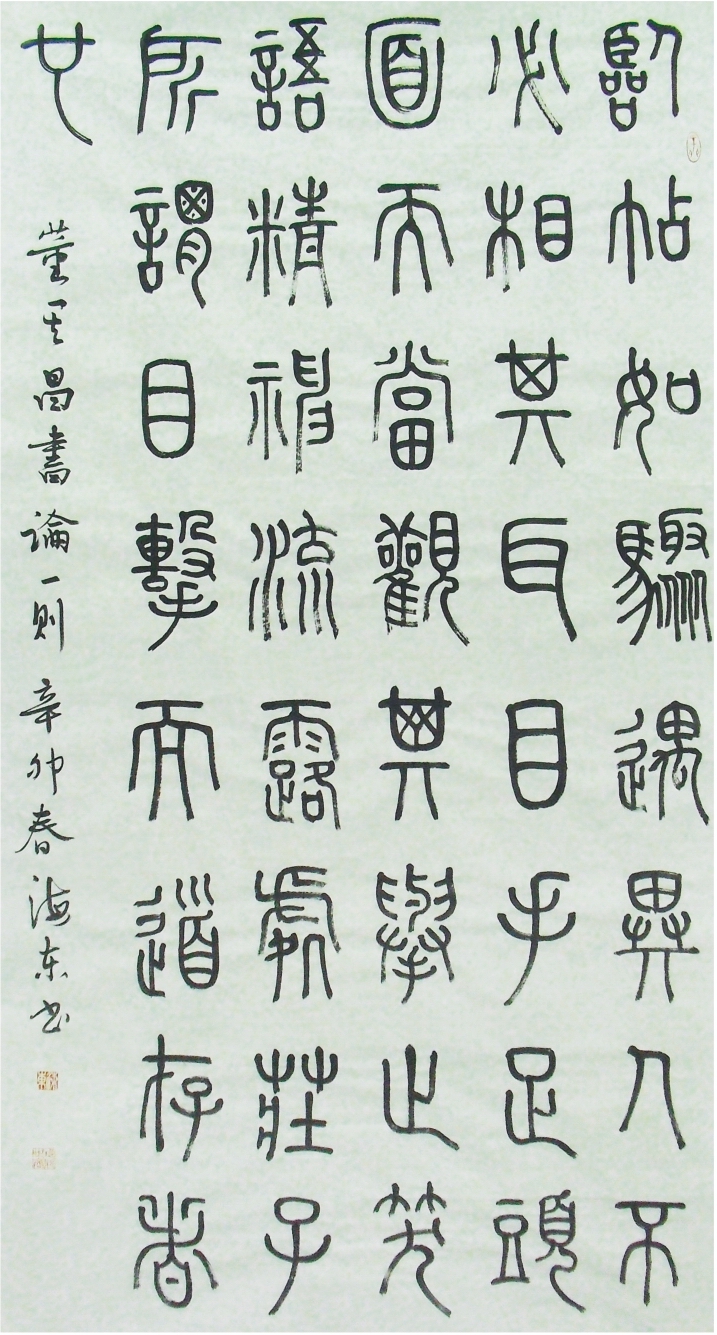 臨帖如驟遇異人不
必相其耳目手足頭
面而當觀其舉止笑
語精神流露處莊子
所謂目擊而道存者
也
董其昌書論一則 辛卯春海东书